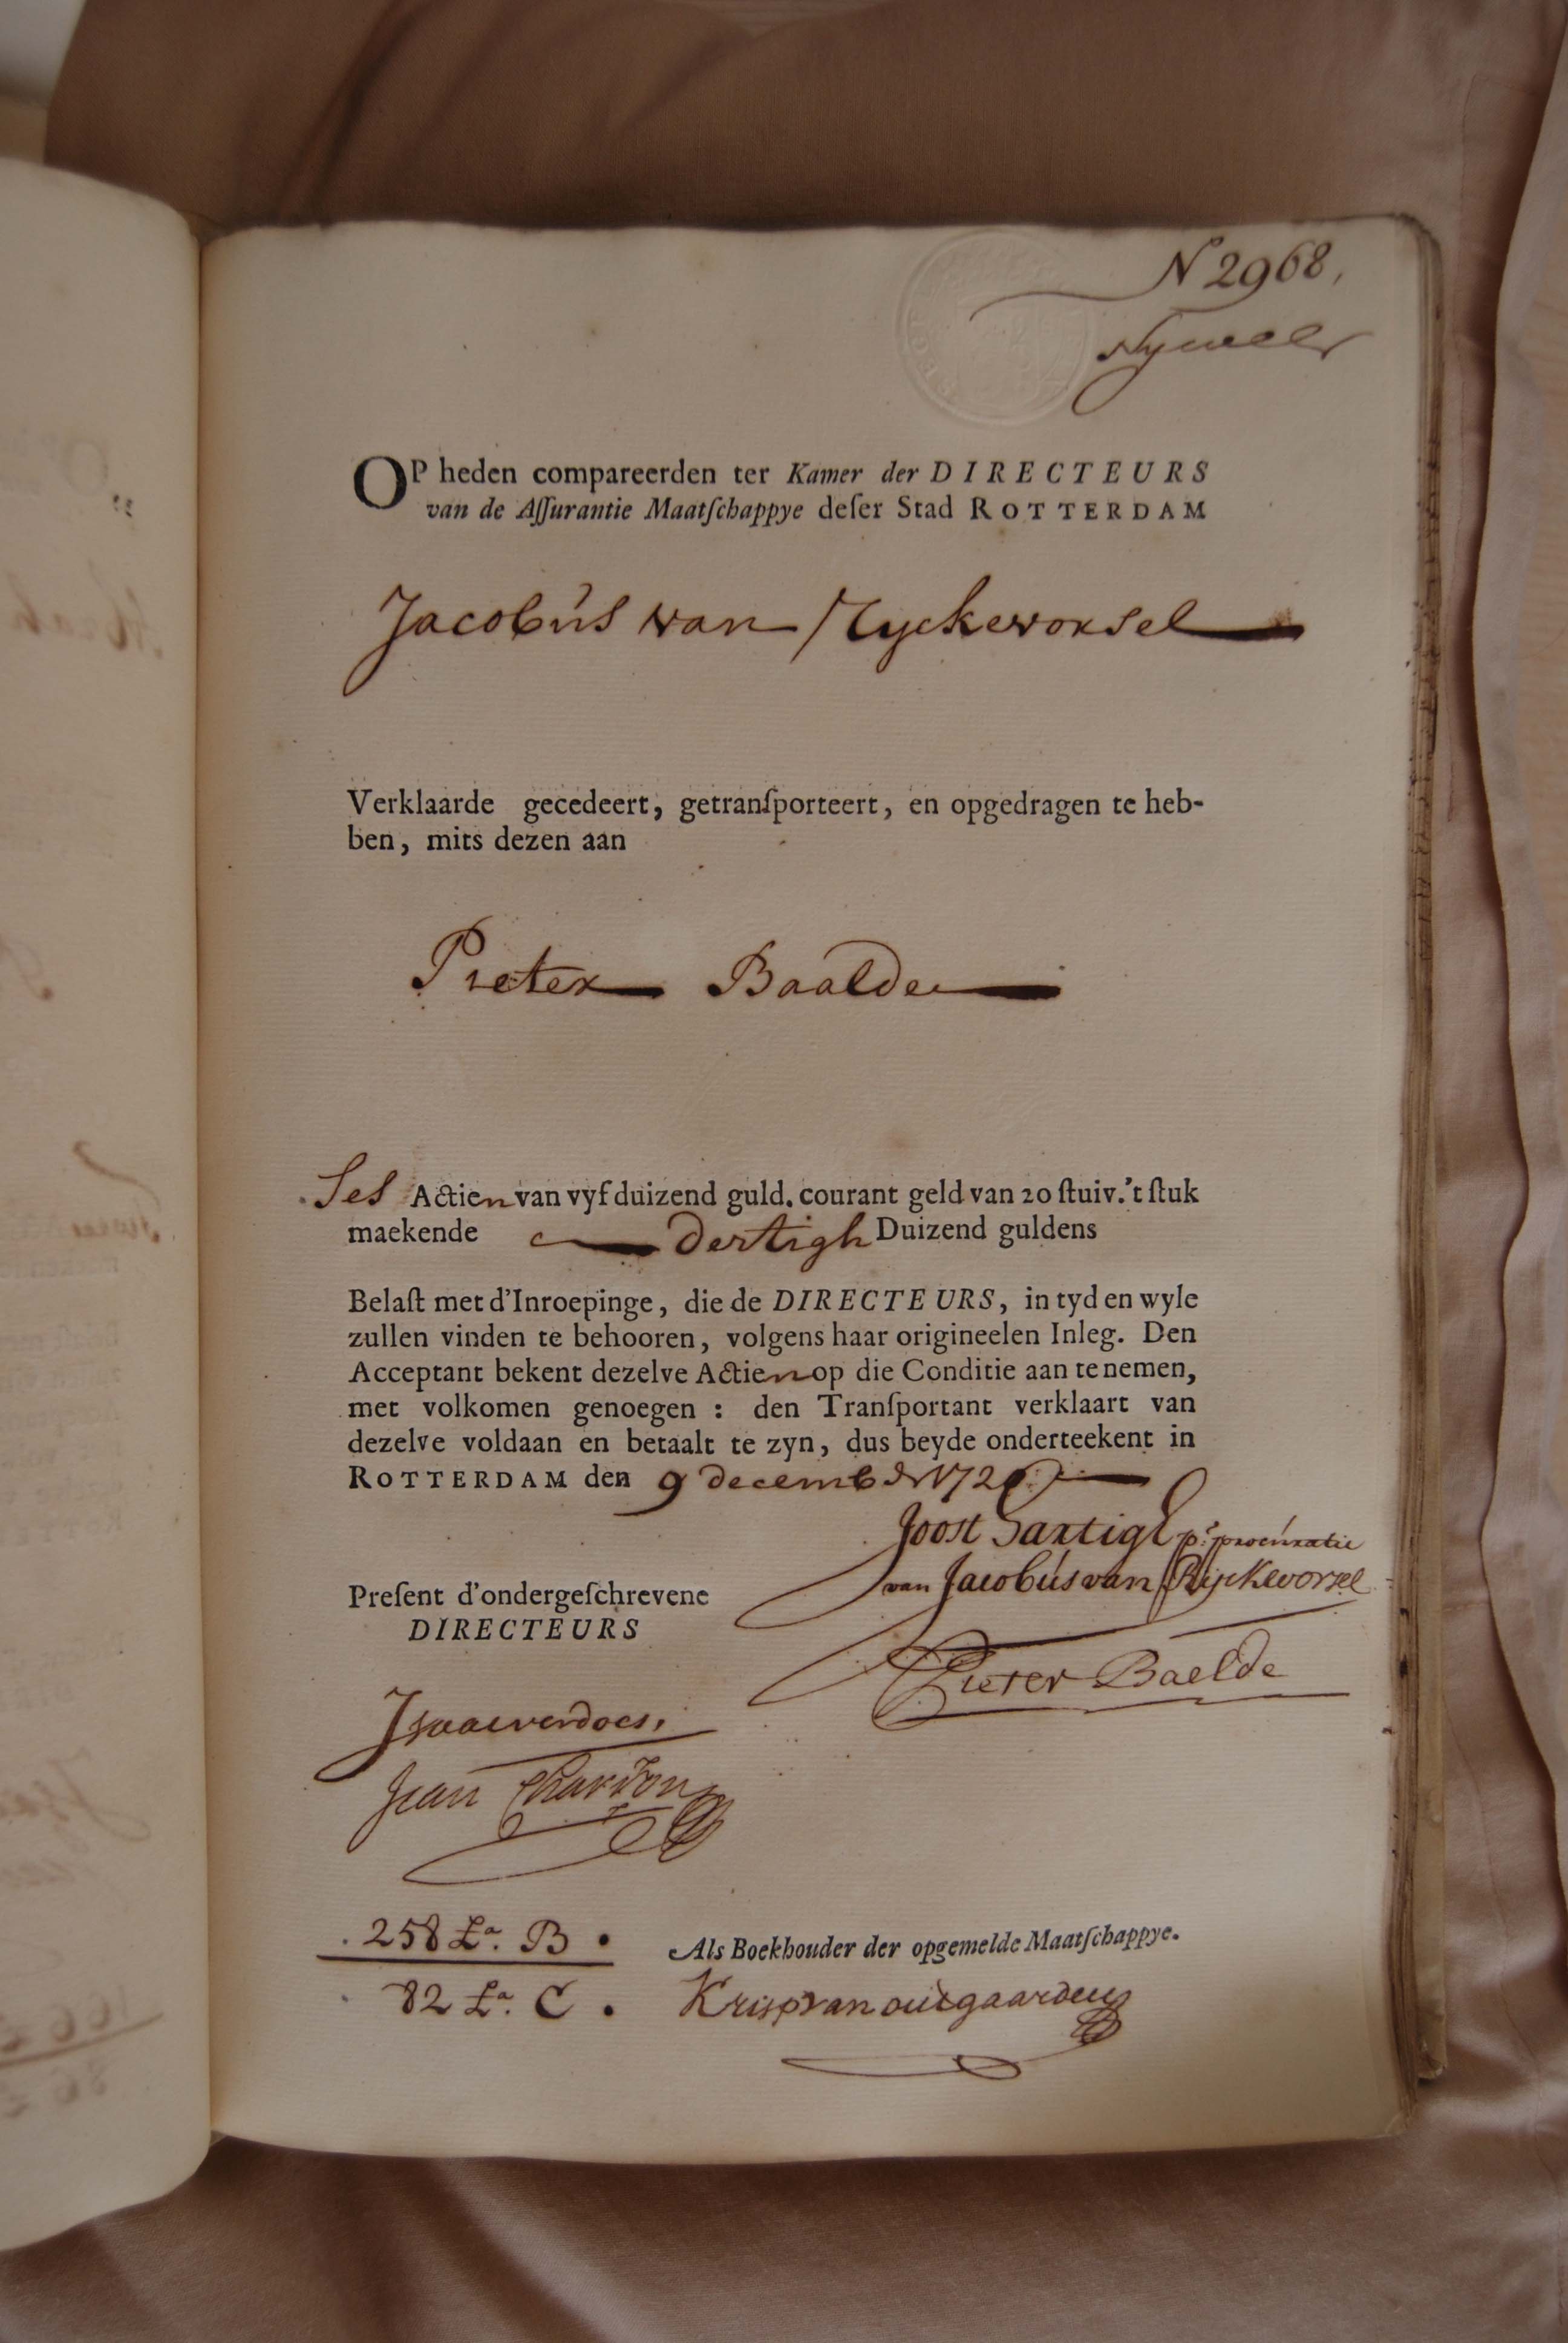 N 2968,
OP heden compareerden ter Kamer der DIRECTEURS
van de Aſſurantie Maatſchappye deſer Stad ROTTERDAM
Jacobus van Ryckevorsel
Verklaarde gecedeert, getranſporteert, en opgedragen te heb-
ben, mits dezen aan
Pieter Baalde
Ses Actien van vyf duizend guld. courant geld van 20 ſtuiv. 't ſtuk
maekende dertigh Duizend guldens
Belaſt met d'Inroepinge, die de DIRECTEURS, in tyd en wyle
zullen vinden te behooren, volgens haar origineelen Inleg. Den
Acceptant bekent dezelve Actien op die Conditie aan te nemen,
met volkomen genoegen : den Tranſportant verklaart van
dezelve voldaan en betaalt te zyn, dus beyde onderteekent in
ROTTERDAM den 9 decembr 1720
Joost Hartigh pr. procuratie
van Jacobus van Rijckevorsel
Preſent d'ondergeſchrevene
DIRECTEURS
Pieter Baelde
Isaacverdoes,
Jean Chardon
258 La. B.
Als Boekhouder der opgemelde Maatſchappye.
82 La. C.
Krisp van outgaarden